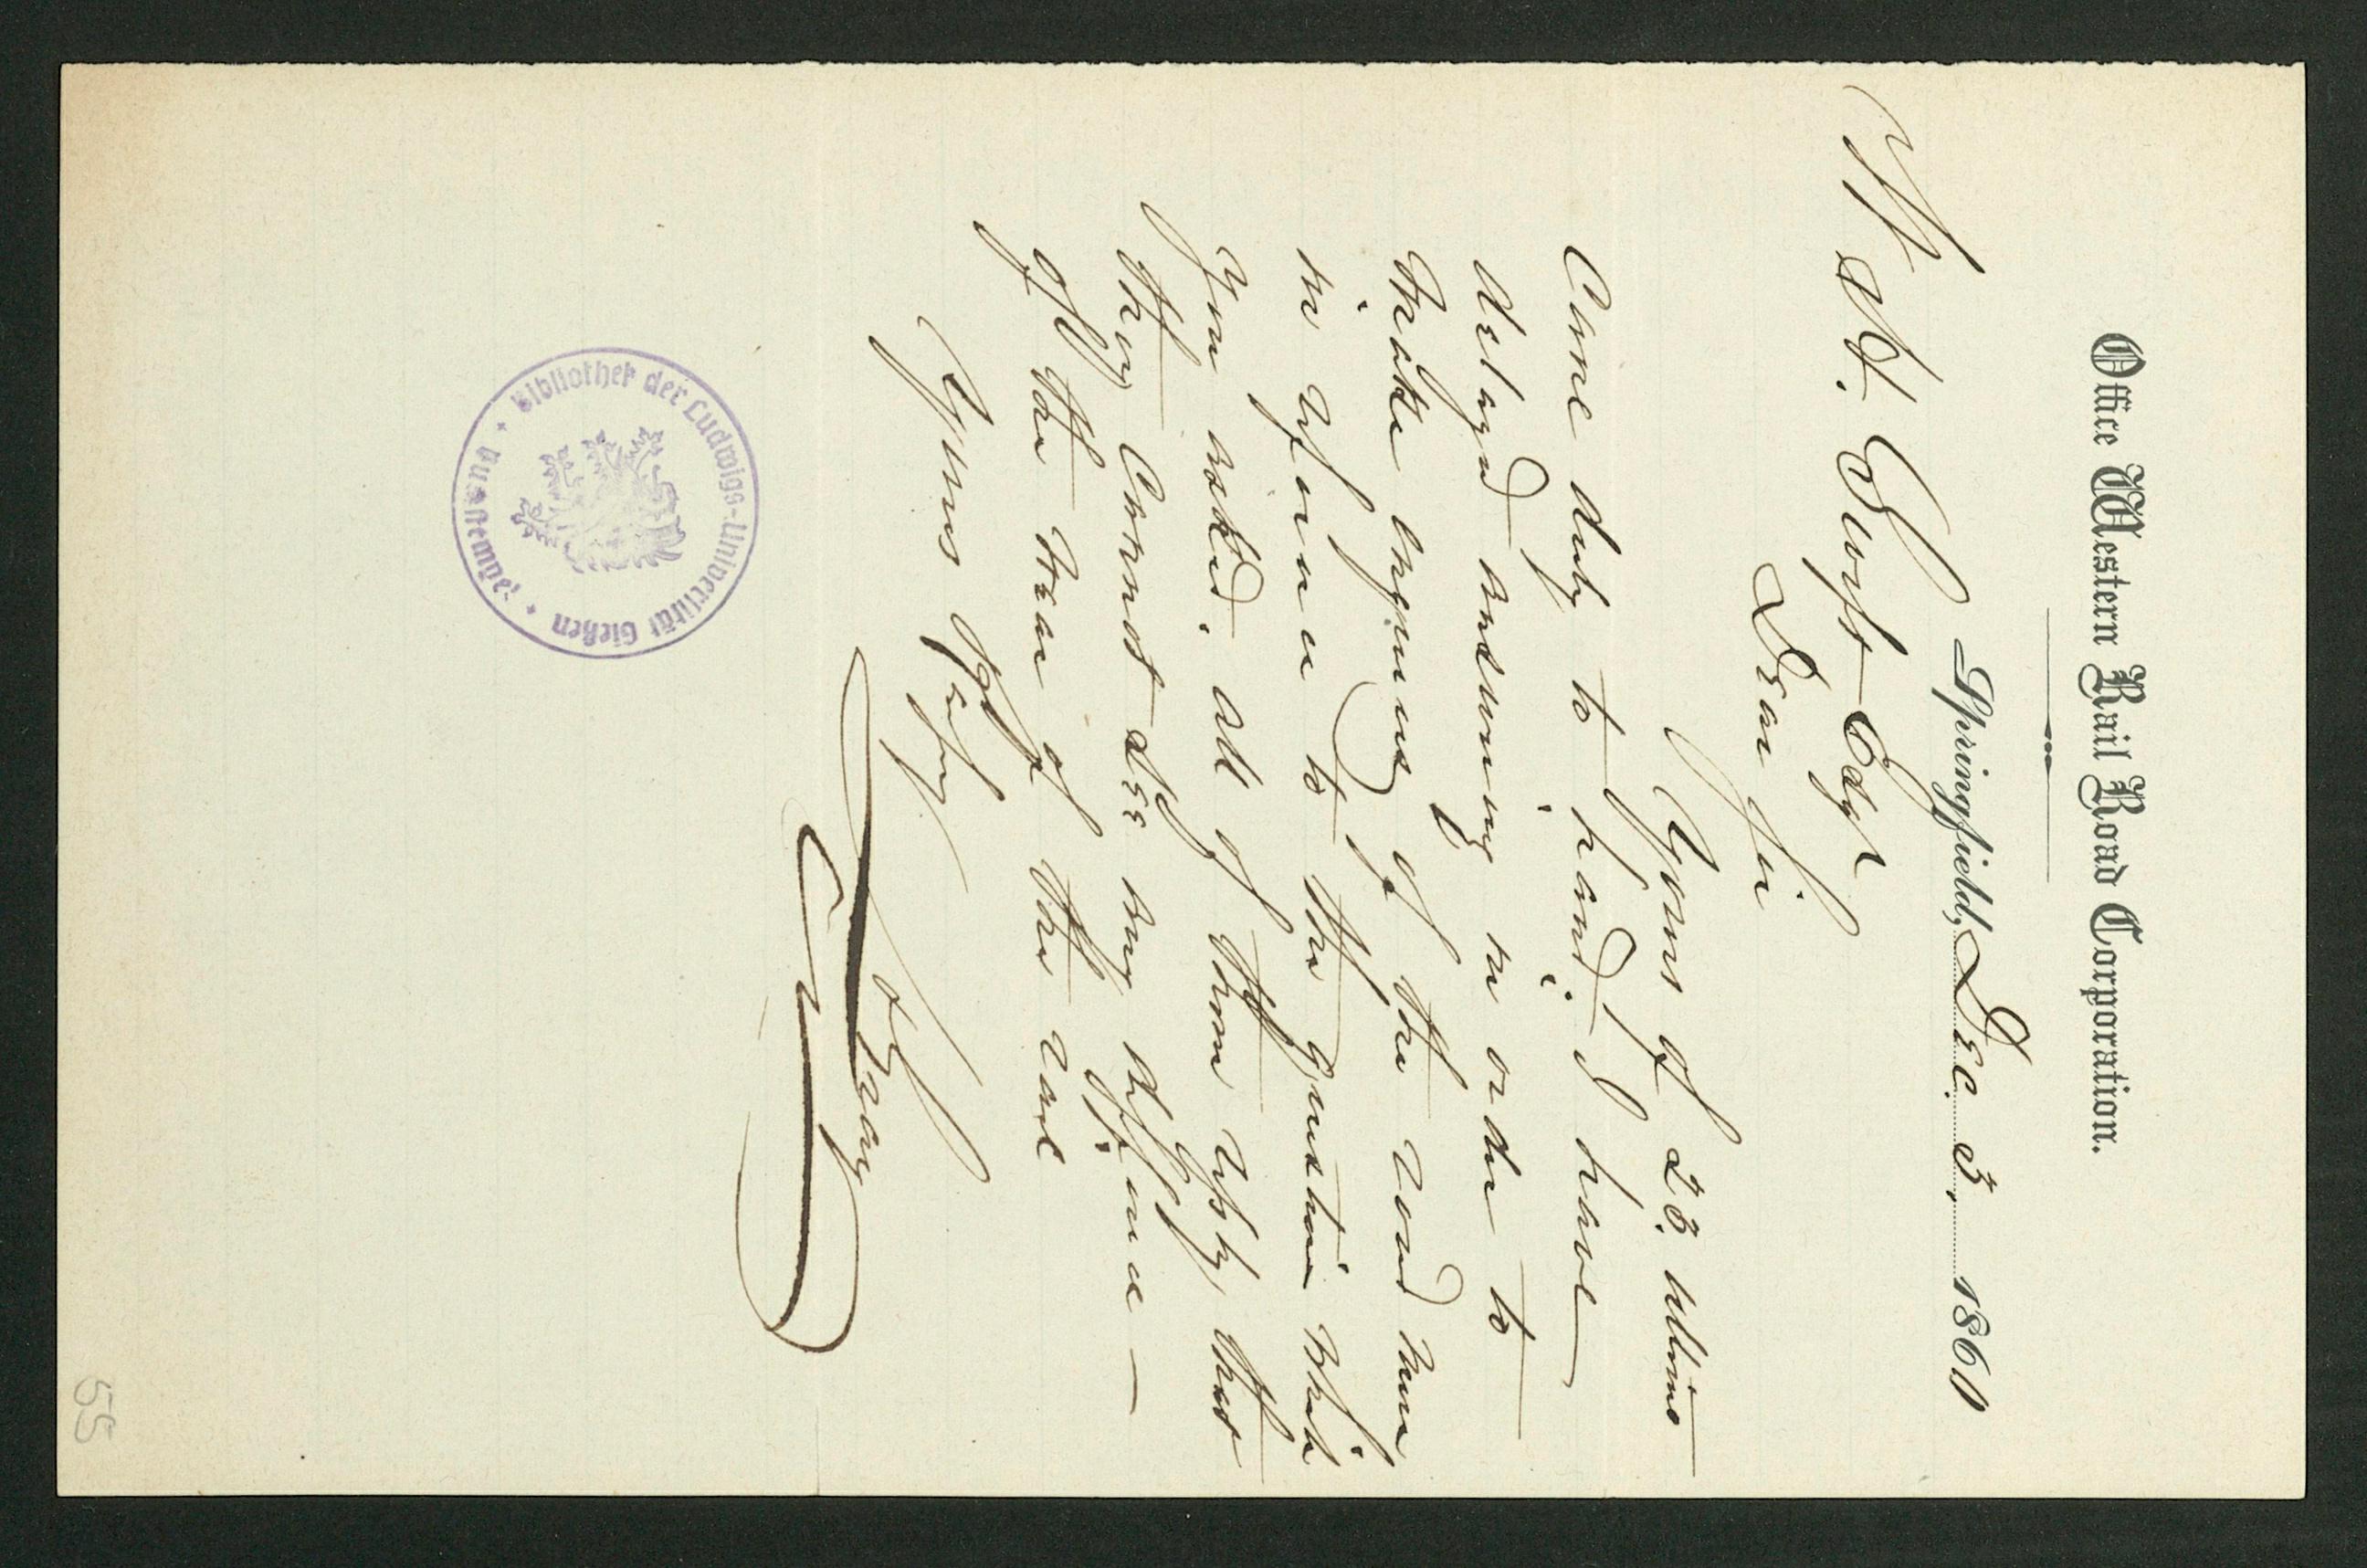 Office Western Rail Road Corporation.
Springfield, Dec. 3. 1860
W. W. Swift Esqr
Dear Sir
Yours of 23. ultimo
Came duly to hand. I have
delayed answering in order to
make inquiries of the road men
in reference to the question which
you asked. All of them reply, that
they cannot see any difference –
of the wear of the rail
Yours Respfy
H Gray
Bibliothek der Ludwigs-Universität Gießen
Ausgestempelt
55